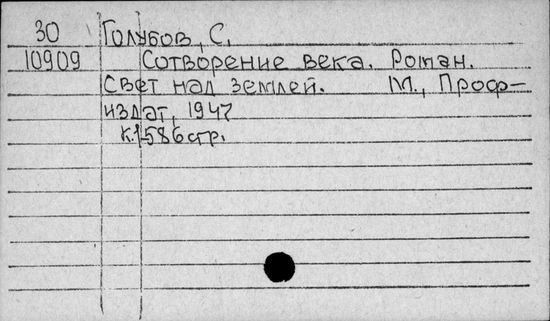 30 Голубов, С.
10909 Сотворение века. Роман.
Свет над землей. М., Проф-
издат, 1947
к.1 586стр.